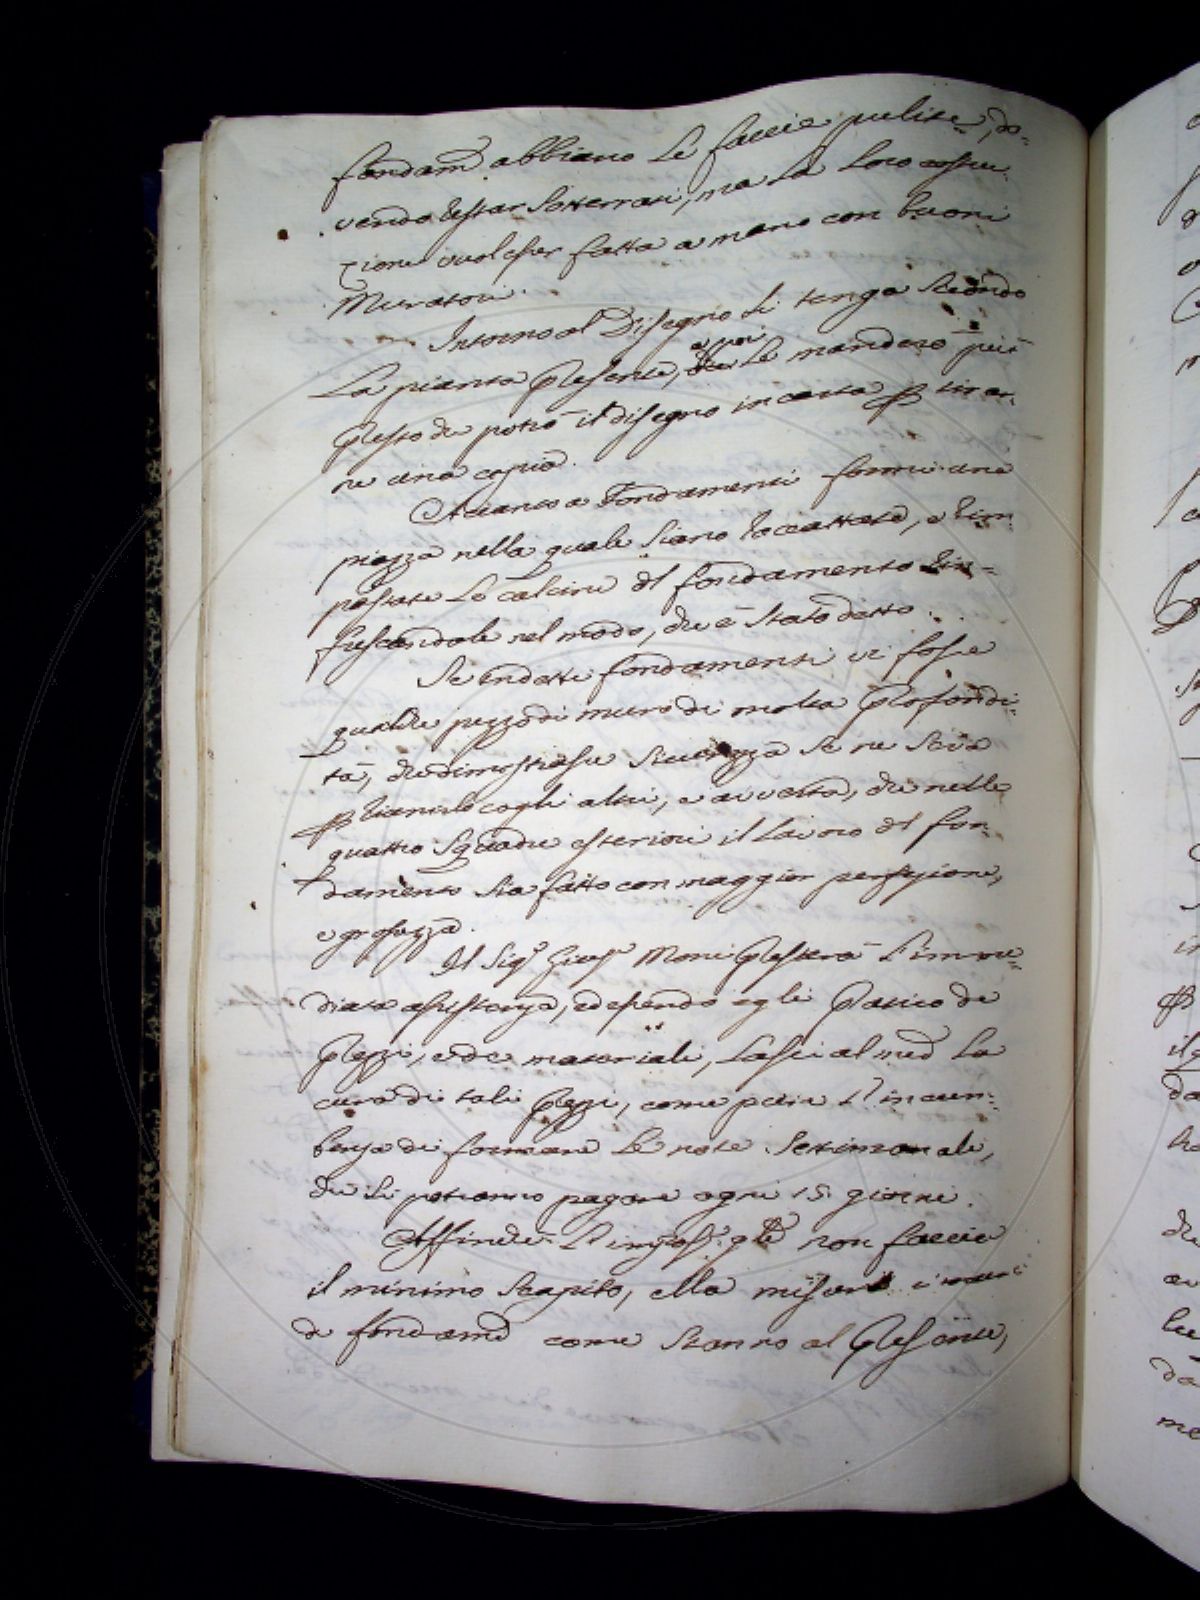 fondam.ti abbiano le faccie pulite, do-
vendo restar sotterrati, ma la loro costru-
zione vuol esser fatta a mano con buoni
Muratori.
Intorno al Disegno si tenga secondo
La pianta presente, e poi le manderò più
presto che potrò il disegno in carta per tirar-
ne una copia.
Quanto a Fondamenti formi una
piazza nella quale siano raccattate, e rim-
pastate le calcine del fondamento rin-
frescandole nel modo, che è stato detto.
Se in detti fondamenti vi fosse
qualche pezzo di muro di molta profondi-
tà, che dimostrasse sicurezza se ne serva
per rianirlo cogli altri, e avverta, che nelle
quattro squadre esteriori il lavoro del fon-
damento sia fatto con maggior perfezione,
e grossezza.
Il Sig.r Gius.e Moni presterà l'imme-
diata assistenza, ed essendo egli pratico de
prezzi, e de materiali, lasci al med.o la
cura di tali prezzi, come pure l'incum-
benza di formare le note settimanali,
che si potranno pagare ogni 15 giorni.
Affinchè l' non faccia
il minimo scapito, ella misuri i muri
de fondam.ti come stanno al presente,